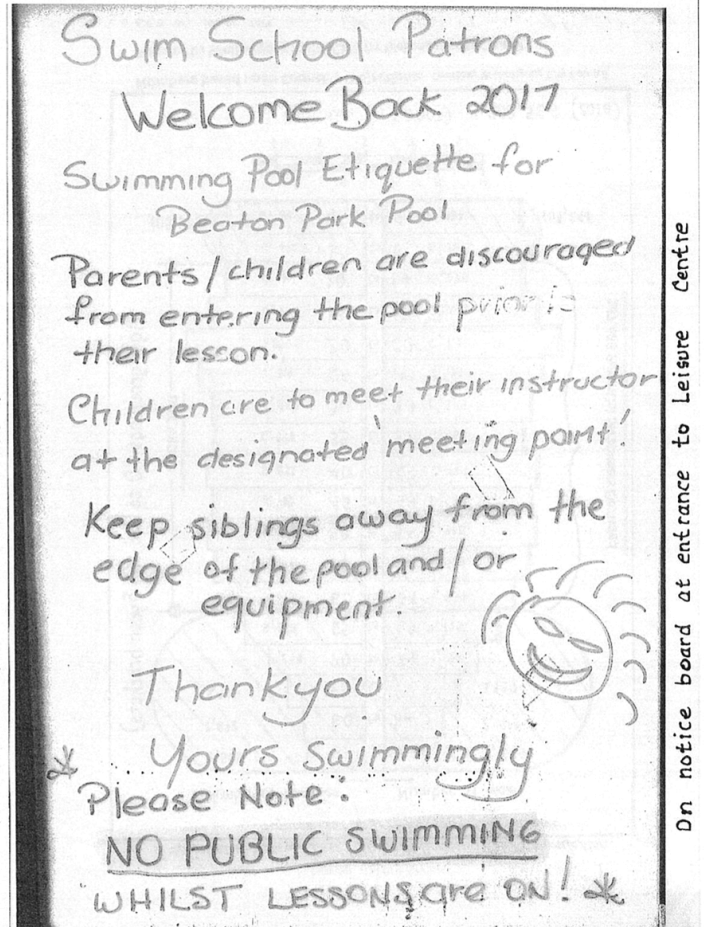 Swim School Patrons
Welcome Back 2017
Swimming Pool Etiquette for
Beaton Park Pool
Parents/children are discouraged
from entering the pool prior to
their lesson.
Children are to meet their instructor
at the designated 'meeting point'.
Keep siblings away from the
edge of the pool and/or
equipment.
Thankyou
Yours Swimmingly
* Please Note:
NO PUBLIC SWIMMING
WHILST LESSONS are ON! *
On notice board at entrance to Leisure Centre